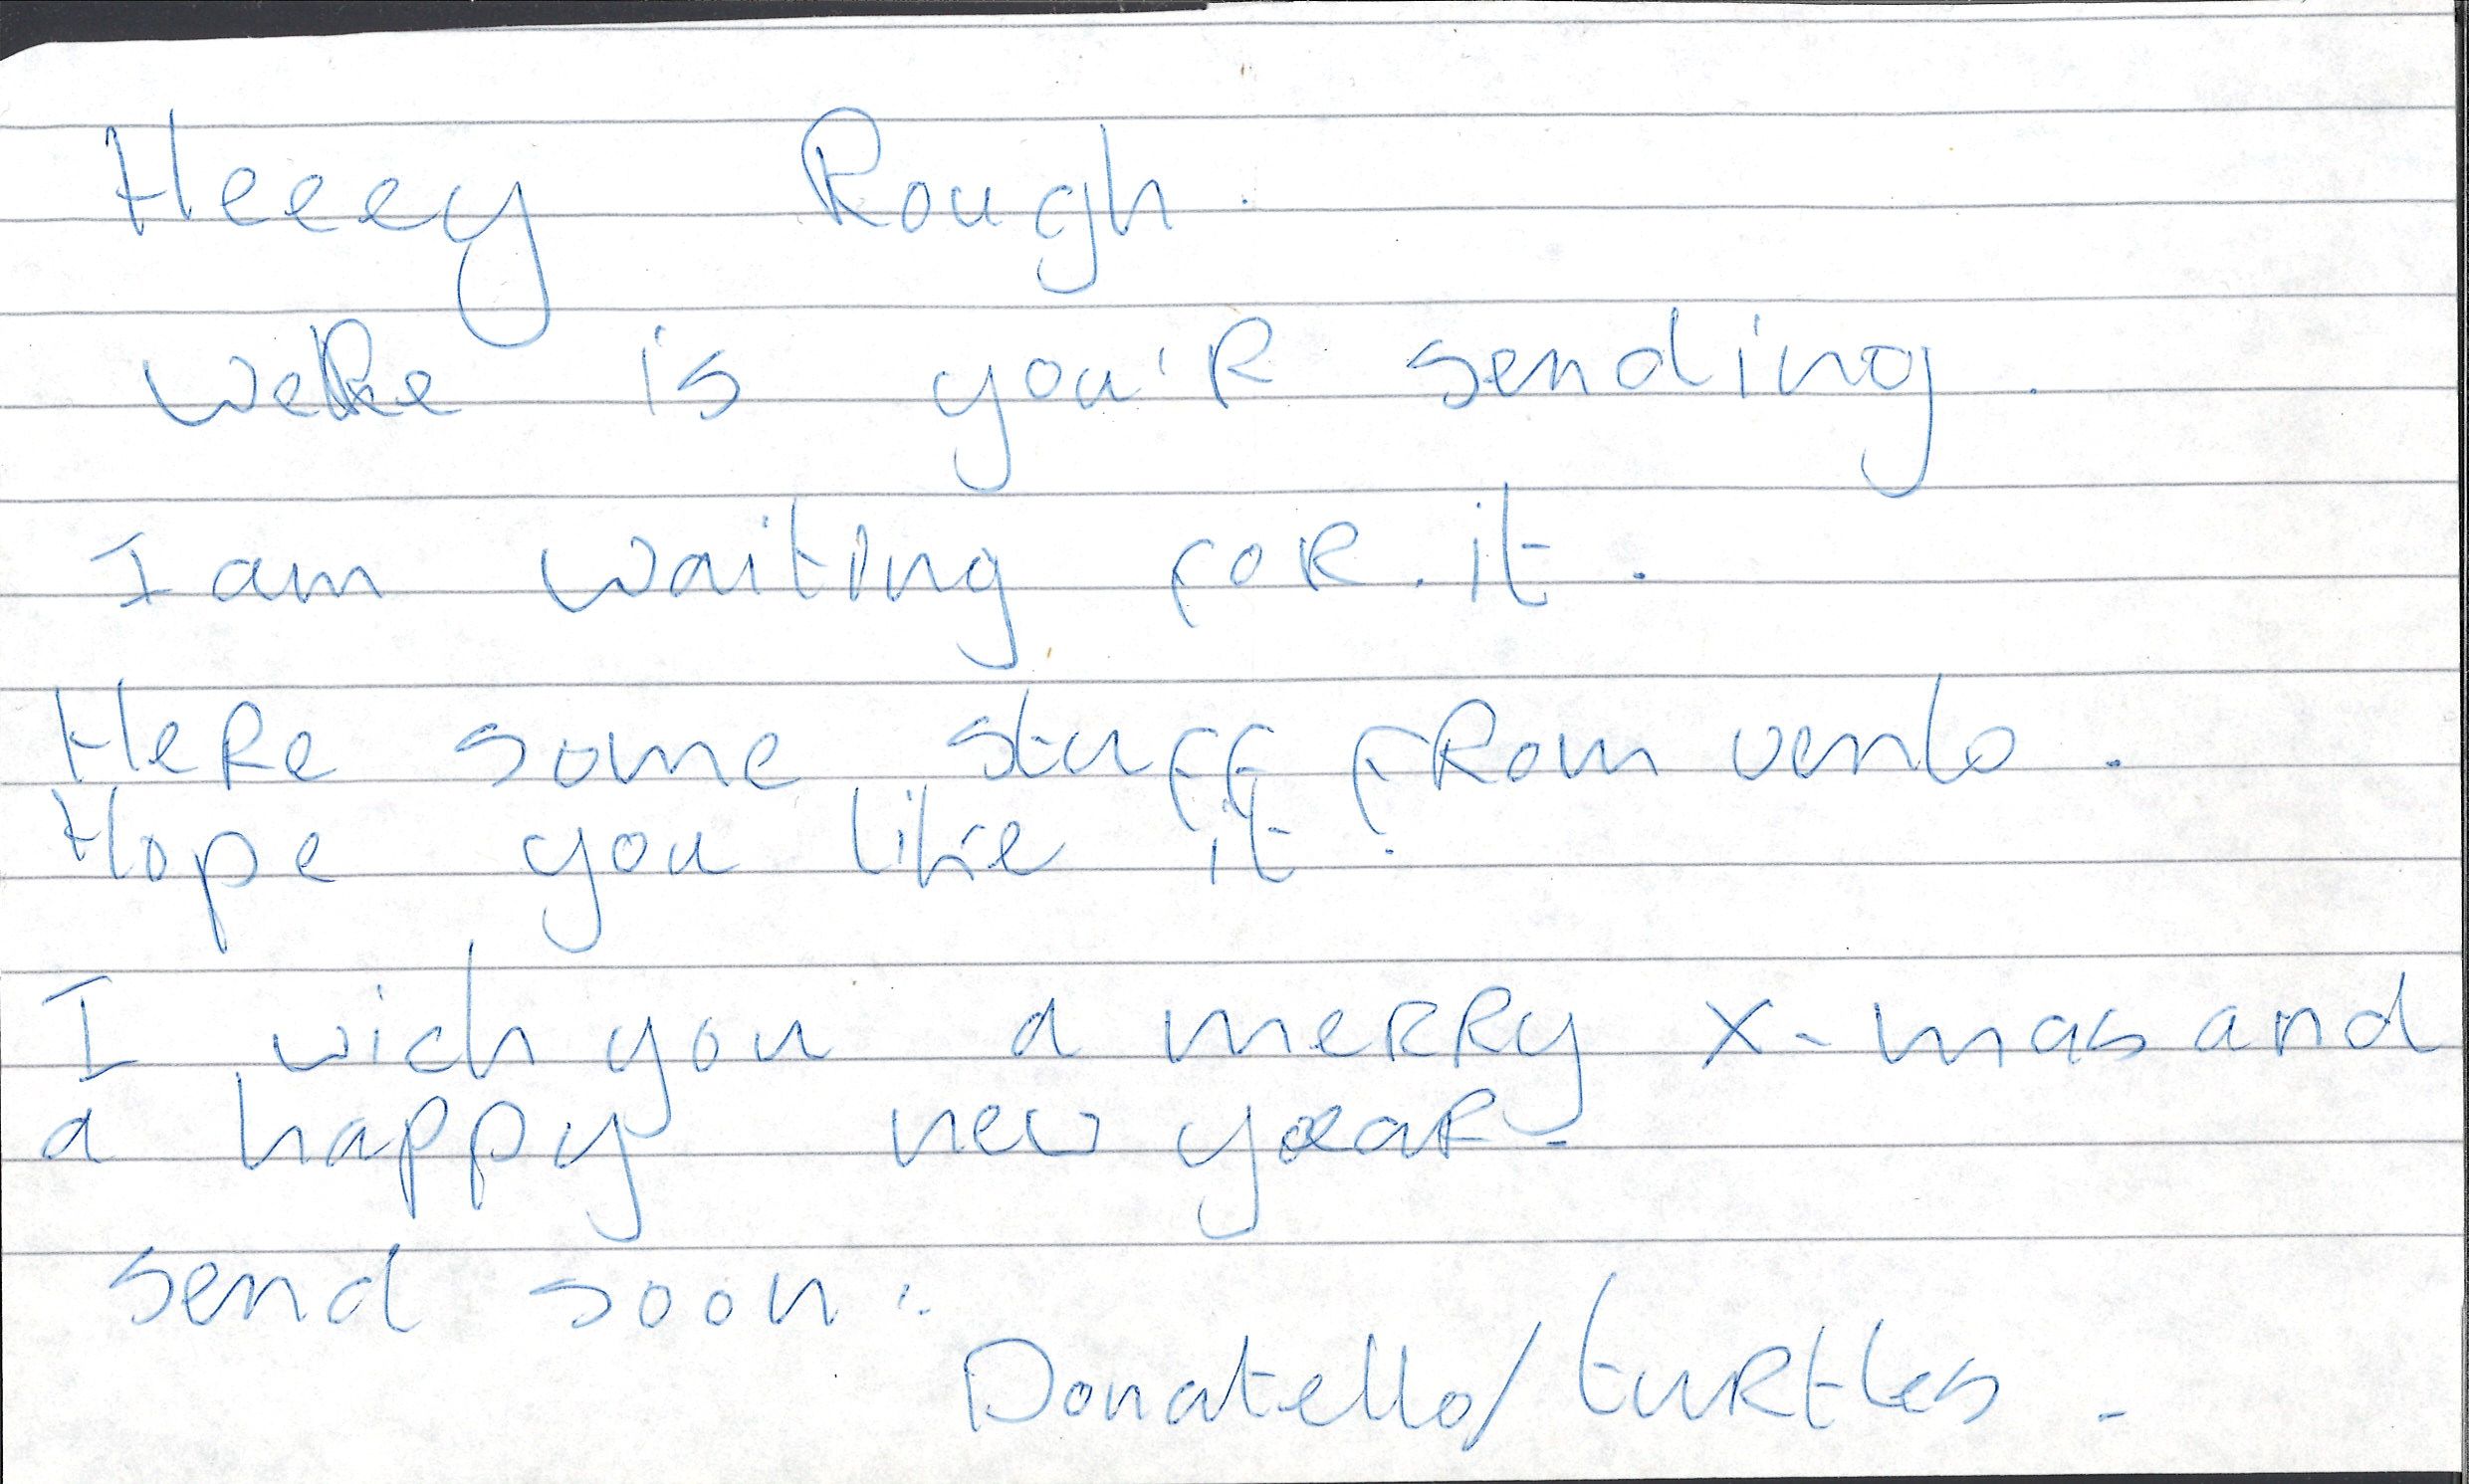 Heeey Rough.
WeRe is you'R sending.
I am waiting foR. it.
HeRe some stuff fRom venlo.
Hope you like it.
I wich you a meRRy x-mas and
a happy new yeaR.
send soon.
Donatello/tuRtles.